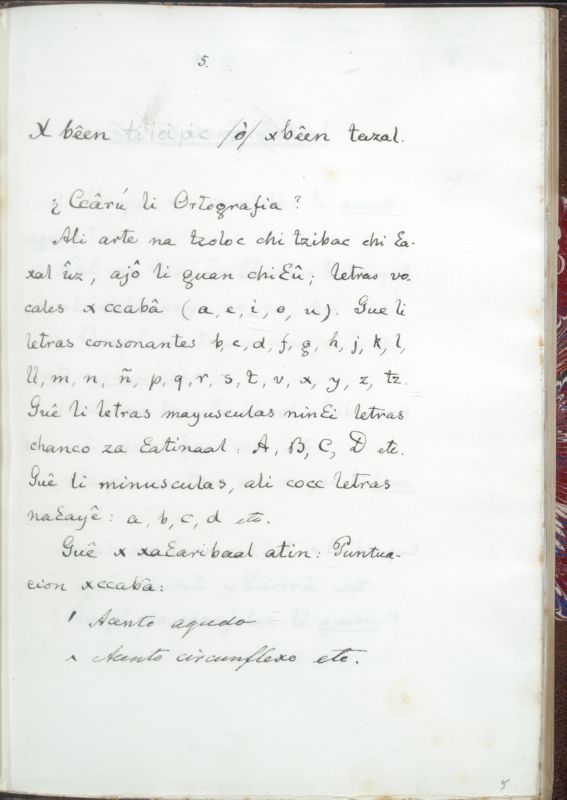 5.
X bêen tilcipic /ò/ xbêen tazal.
¿Ccârú li Ortografia?
Ali arte na tzoloc chi tzibac chi Ɛa-
xal ûz, ajô li guan chiƐû; letras vo-
cales xccabâ (a, e, i, o, u). Gue li
letras consonantes b, c, d, f, g, h, j, k, l,
ll, m, n, ñ, p, q, r, s, t, v, x, y, z, tz.
Guê li letras mayusculas ninƐi letras
chanco za Ɛatinaal: A, B, C, D etc.
Guê li minusculas, ali cocc letras
naƐayê: a, b, c, d etc.
Guê x xaƐaribaal atin: Puntua-
cion xccabâ:
' Acento agudo
^ Acento circunflexo etc.
5